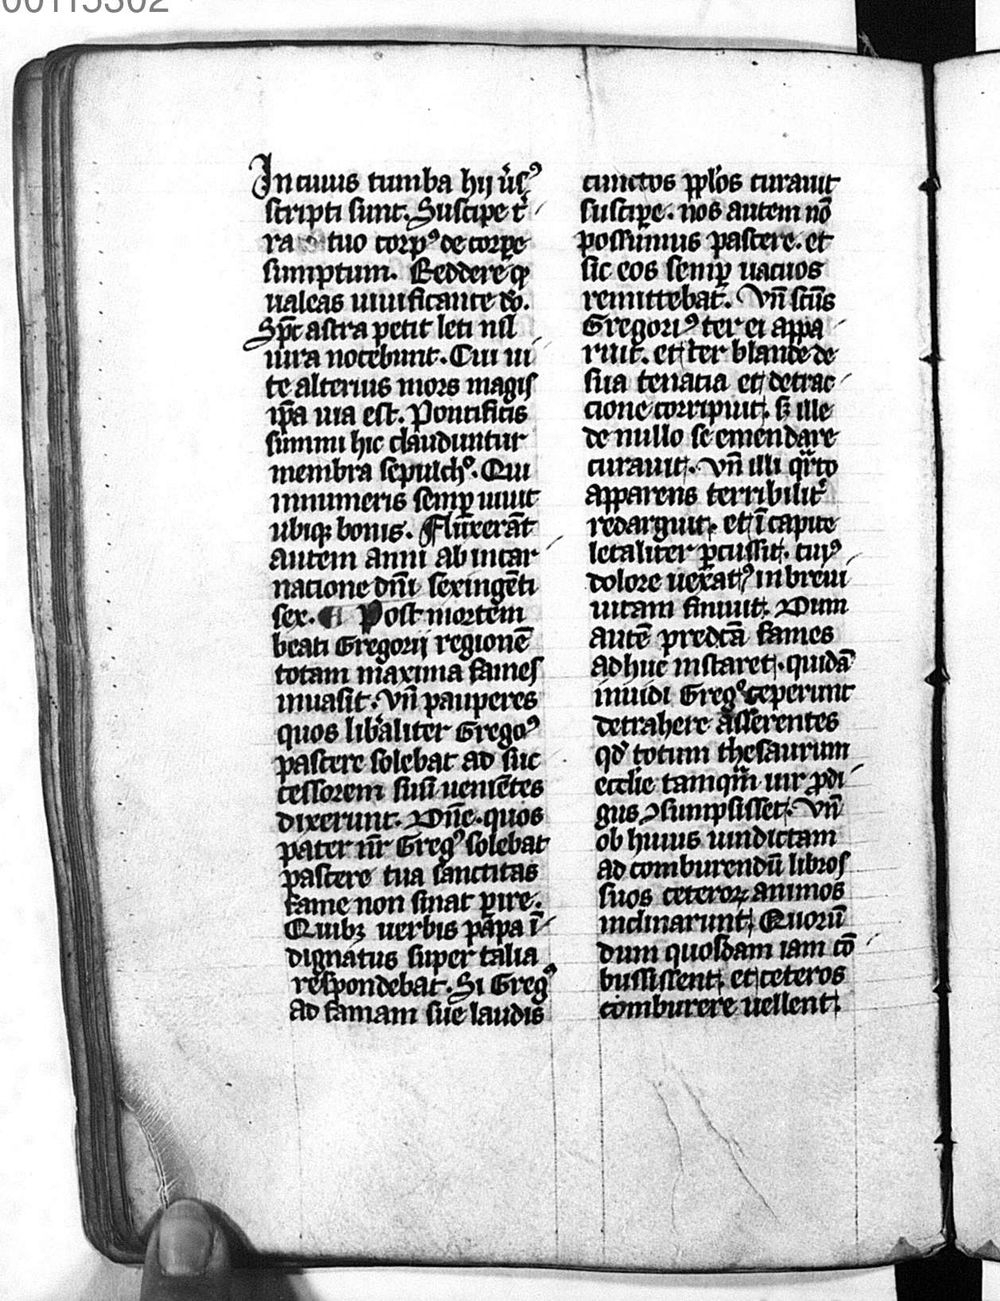 00115302
In cuius tumba hij ũs᷒ꝰ
scripti sunt. Suscipe t̃
ra tuo corpꝰ de corpe
sumptum. Reddere qͥ
ualeas uiuificante do.
Sp̃c astra petit leti nil
iura nocebunt. Cui ui
te alterius mors magis
ip̃a uia est. Pontificis
summi hic clauduntur
membra sepulchꝰ. Qui
innumeris semp̱ uiuit
ubiqꝫ bonis. Fluxerãt
autem anni ab incar
nacione dñi sexingẽti
sex. ¶ Post mortem
beati Gregorij regionẽ
totam maxima fames
inuasit. Vñ pauperes
quos libãliter Gregoꝰ
pascere solebat ad suc
cessorem suũ uenĩetes
dixerunt. Dñe. quos
pater nr̃ Gregꝰ solebat
pascere tua sanctitas
fame non sinat ꝑire.
Quibꝫ uerbis papa ĩ
dignatus super talia
respondebat. Si Gregꝰ
ad famam sue laudis
cunctos ppl̃os curauit
suscipe. nos autem nõ
possumus pascere. et
sic eos semp̱ uacuos
remittebat. Vñ sc̃us
Gregoriꝰ ter ei appa
ruit. et ter blande de
sua tenacia et detrac
cione corripuit. sꝫ ille
de nullo se emendare
curauit. Vñ illi qr̃to
apparens terribilit̃
redarguit. et ĩ capite
letaliter ꝑcussit. cuiꝰ
dolore uexatꝰ in breui
uitam finiuit. Dum
autẽ predc̃a fames
adhuc instaret. quidã
inuidi Gregꝰ ceperunt
detrahere asserentes
qd̃ totum thesaurum
ecclie tamqm̃ uir ꝓdi
gus ꝯsumpsisset. Vñ
ob huius uindictam
ad comburendũ libros
suos ceteroꝝ animos
inclinarunt. Quorũ
dum quosdam iam cõ
bussissent. et ceteros
comburere uellent.